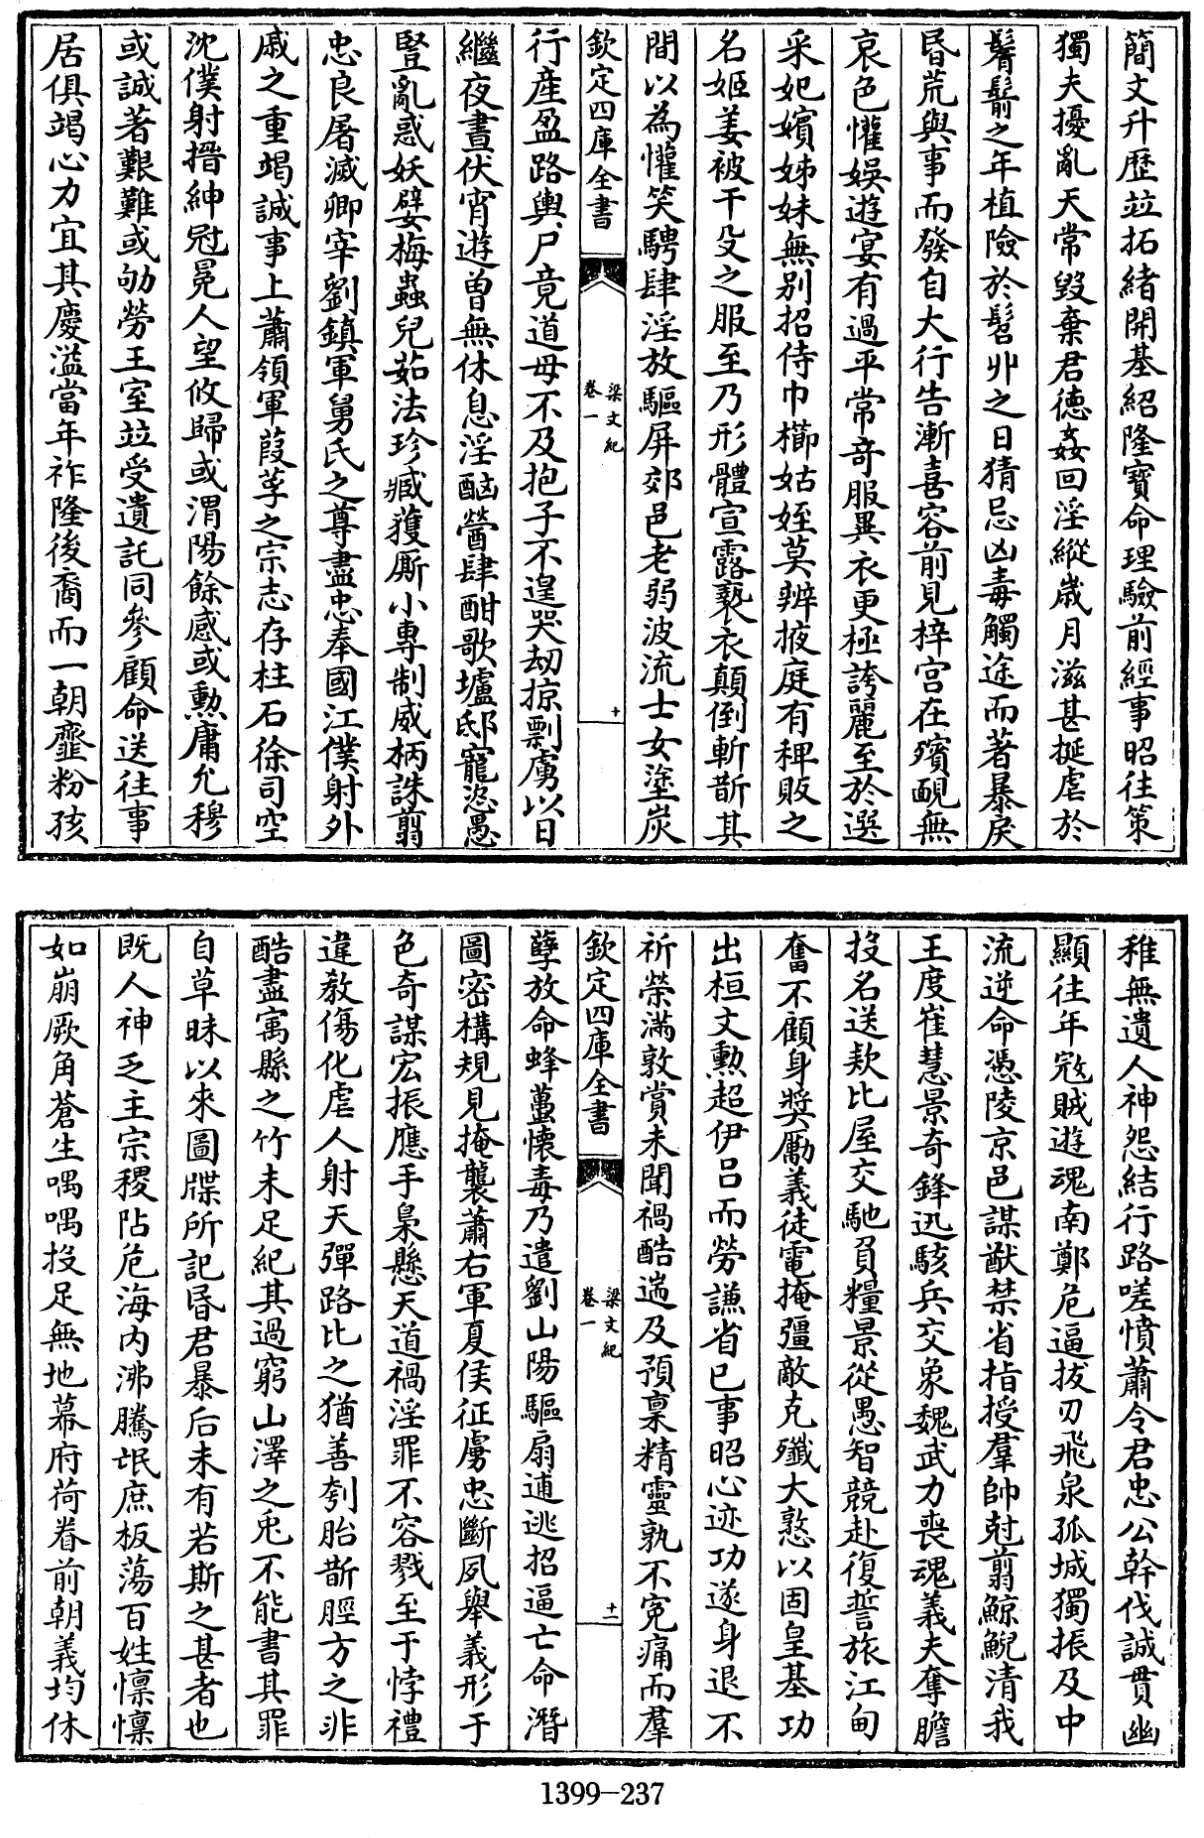 簡文升歴竝拓緒開基紹隆寶命理驗前經事昭往策
獨夫擾亂天常毀棄君徳姦回淫縱歲月滋甚挻虐於
鬌鬋之年植險於髫丱之日猜忌凶毒觸途而著暴戾
昏荒與事而發自大行告漸喜容前見梓宮在殯靦無
哀色懽娛遊宴有過平常竒服異衣更極誇麗至於選
采妃嬪姊妹無别招侍巾櫛姑姪莫辨掖庭有稗販之
名姬姜被干殳之服至乃形體宣露䙝衣顛倒斬斮其
間以為懽笑騁肆淫放驅屏郊邑老弱波流士女塗炭
欽定四庫全書
梁文紀
卷一
十
行產盈路輿尸竟道母不及抱子不遑哭劫掠剽虜以日
繼夜晝伏宵遊曾無休息淫酗醟肆酣歌壚邸寵恣愚
豎亂惑妖孼梅蟲兒茹法珍臧獲厮小專制威柄誅翦
忠良屠滅卿宰劉鎮軍舅氏之尊盡忠奉國江僕射外
戚之重竭誠事上蕭領軍葭莩之宗志存柱石徐司空
沈僕射搢紳冠冕人望攸歸或渭陽餘感或勲庸允穆
或誠著艱難或劬勞王室竝受遺託同參顧命送往事
居俱竭心力宜其慶溢當年祚隆後裔而一朝韲粉孩
稚無遺人神怨結行路嗟憤蕭令君忠公幹伐誠貫幽
顯往年寇賊遊魂南鄭危逼拔刃飛泉孤城獨振及中
流逆命憑陵京邑謀猷禁省指授羣帥尅翦鯨鯢清我
王度崔慧景奇鋒迅駭兵交象魏武力喪魂義夫奪膽
投名送欵比屋交馳負糧景從愚智競赴復誓旅江甸
奮不顧身奬厲義徒電掩彊敵克殲大憝以固皇基功
出桓文勲超伊吕而勞謙省己事昭心迹功遂身退不
祈榮滿敦賞未聞禍酷遄及預禀精靈孰不寃痛而羣
欽定四庫全書
梁文紀
卷一
十一
孽放命蜂蠆懐毒乃遣劉山陽驅扇逋逃招逼亡命潛
圖密構規見掩襲蕭右軍夏侯征虜忠斷夙舉義形于
色奇謀宏振應手梟懸天道禍淫罪不容戮至于悖禮
違教傷化虐人射天彈路比之猶善刳胎斮脛方之非
酷盡寓縣之竹未足紀其過窮山澤之兎不能書其罪
自草昧以來圖牒所記昏君暴后未有若斯之甚者也
既人神乏主宗稷阽危海内沸騰氓庶板蕩百姓懍懍
如崩厥角蒼生喁喁投足無地幕府荷眷前朝義均休
1399-237